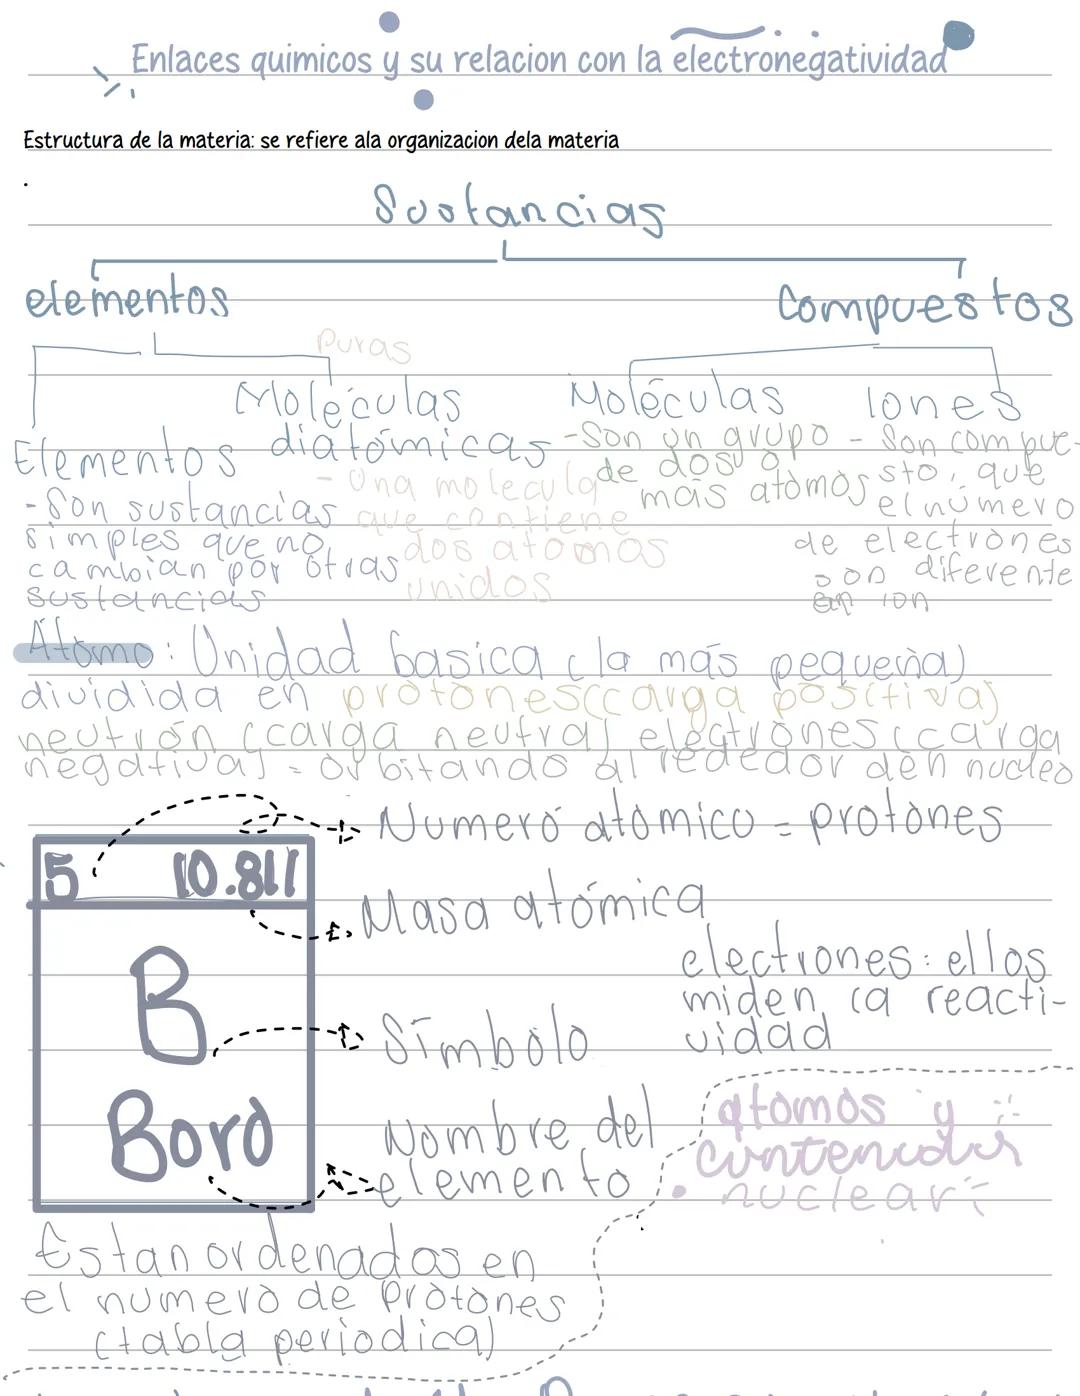 Enlaces quimicos y su relacion con la electronegatividad
Estructura de la materia: se refiere ala organizacion dela materia
.
Sustancias
elementos
Compuestos
Puras
Elementos
- Son sustancias
simples que no
cambian por otras
sustancias
Moléculas
diatómicas
- Una molecula
que contiene
dos atomos
unidos
Moléculas
- Son un grupo
de dos o
más atomos
Iones
- Son compue-
sto, que
el número
de electrones
son diferente
en ion
Átomo: Unidad basica (la más pequeña)
dividida en protones(carga positiva)
neutrón (carga neutra) electrones (carga
negativa) - orbitando al rededor den nucleo
5 10.811
B
Boro
Numero atomico = protones
Masa atómica
Símbolo
Nombre del
elemento
electrones: ellos
miden la reacti-
vidad
atomos y
contenidos
nuclear
Estan ordenados en
el numero de protones
(tabla periodica)